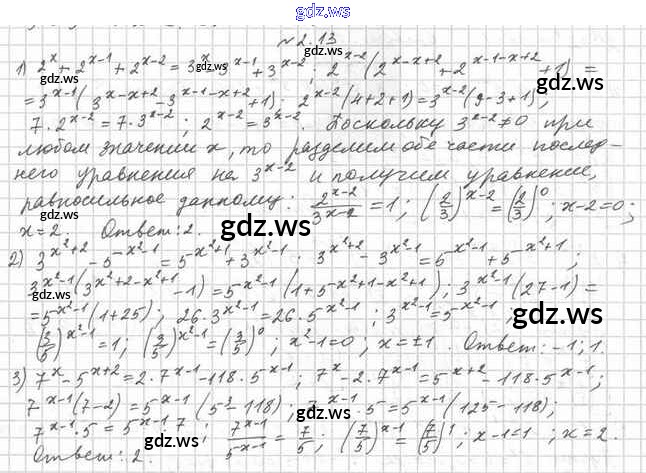 gdz.ws
№ 2.13
1) 2^x + 2^{x-1} + 2^{x-2} = 3^x - 3^{x-1} + 3^{x-2}; 2^{x-2}(2^{x-x+2} + 2^{x-1-x+2} + 1) =
= 3^{x-1}(3^{x-x+2} - 3^{x-1-x+2} + 1); 2^{x-2}(4+2+1) = 3^{x-2}(9-3+1);
7·2^{x-2} = 7·3^{x-2}; 2^{x-2} = 3^{x-2}. Поскольку 3^{x-2} ≠ 0 при
любом значении x, то разделим обе части послед-
него уравнения на 3^{x-2} и получим уравнение,
равносильное данному: \frac{2^{x-2}}{3^{x-2}} = 1; (\frac{2}{3})^{x-2} = (\frac{2}{3})^0; x-2=0;
x=2. Ответ: 2.
2) 3^{x^2+2} - 5^{x^2-1} = 5^{x^2+1} + 3^{x^2-1}; 3^{x^2+2} - 3^{x^2-1} = 5^{x^2-1} + 5^{x^2+1};
3^{x^2-1}(3^{x^2+2-x^2+1} - 1) = 5^{x^2-1}(1+5^{x^2+1-x^2+1}); 3^{x^2-1}(27-1) =
= 5^{x^2-1}(1+25); 26·3^{x^2-1} = 26·5^{x^2-1}; 3^{x^2-1} = 5^{x^2-1};
(\frac{3}{5})^{x^2-1} = 1; (\frac{3}{5})^{x^2-1} = (\frac{3}{5})^0; x^2-1=0; x=±1. Ответ: -1; 1.
3) 7^x - 5^{x+2} = 2·7^{x-1} - 118·5^{x-1}; 7^x - 2·7^{x-1} = 5^{x+2} - 118·5^{x-1};
7^{x-1}(7-2) = 5^{x-1}(5^3-118); 7^{x-1}·5 = 5^{x-1}(125-118);
7^{x-1}·5 = 5^{x-1}·7; \frac{7^{x-1}}{5^{x-1}} = \frac{7}{5}; (\frac{7}{5})^{x-1} = (\frac{7}{5})^1; x-1=1; x=2.
Ответ: 2.
gdz.ws